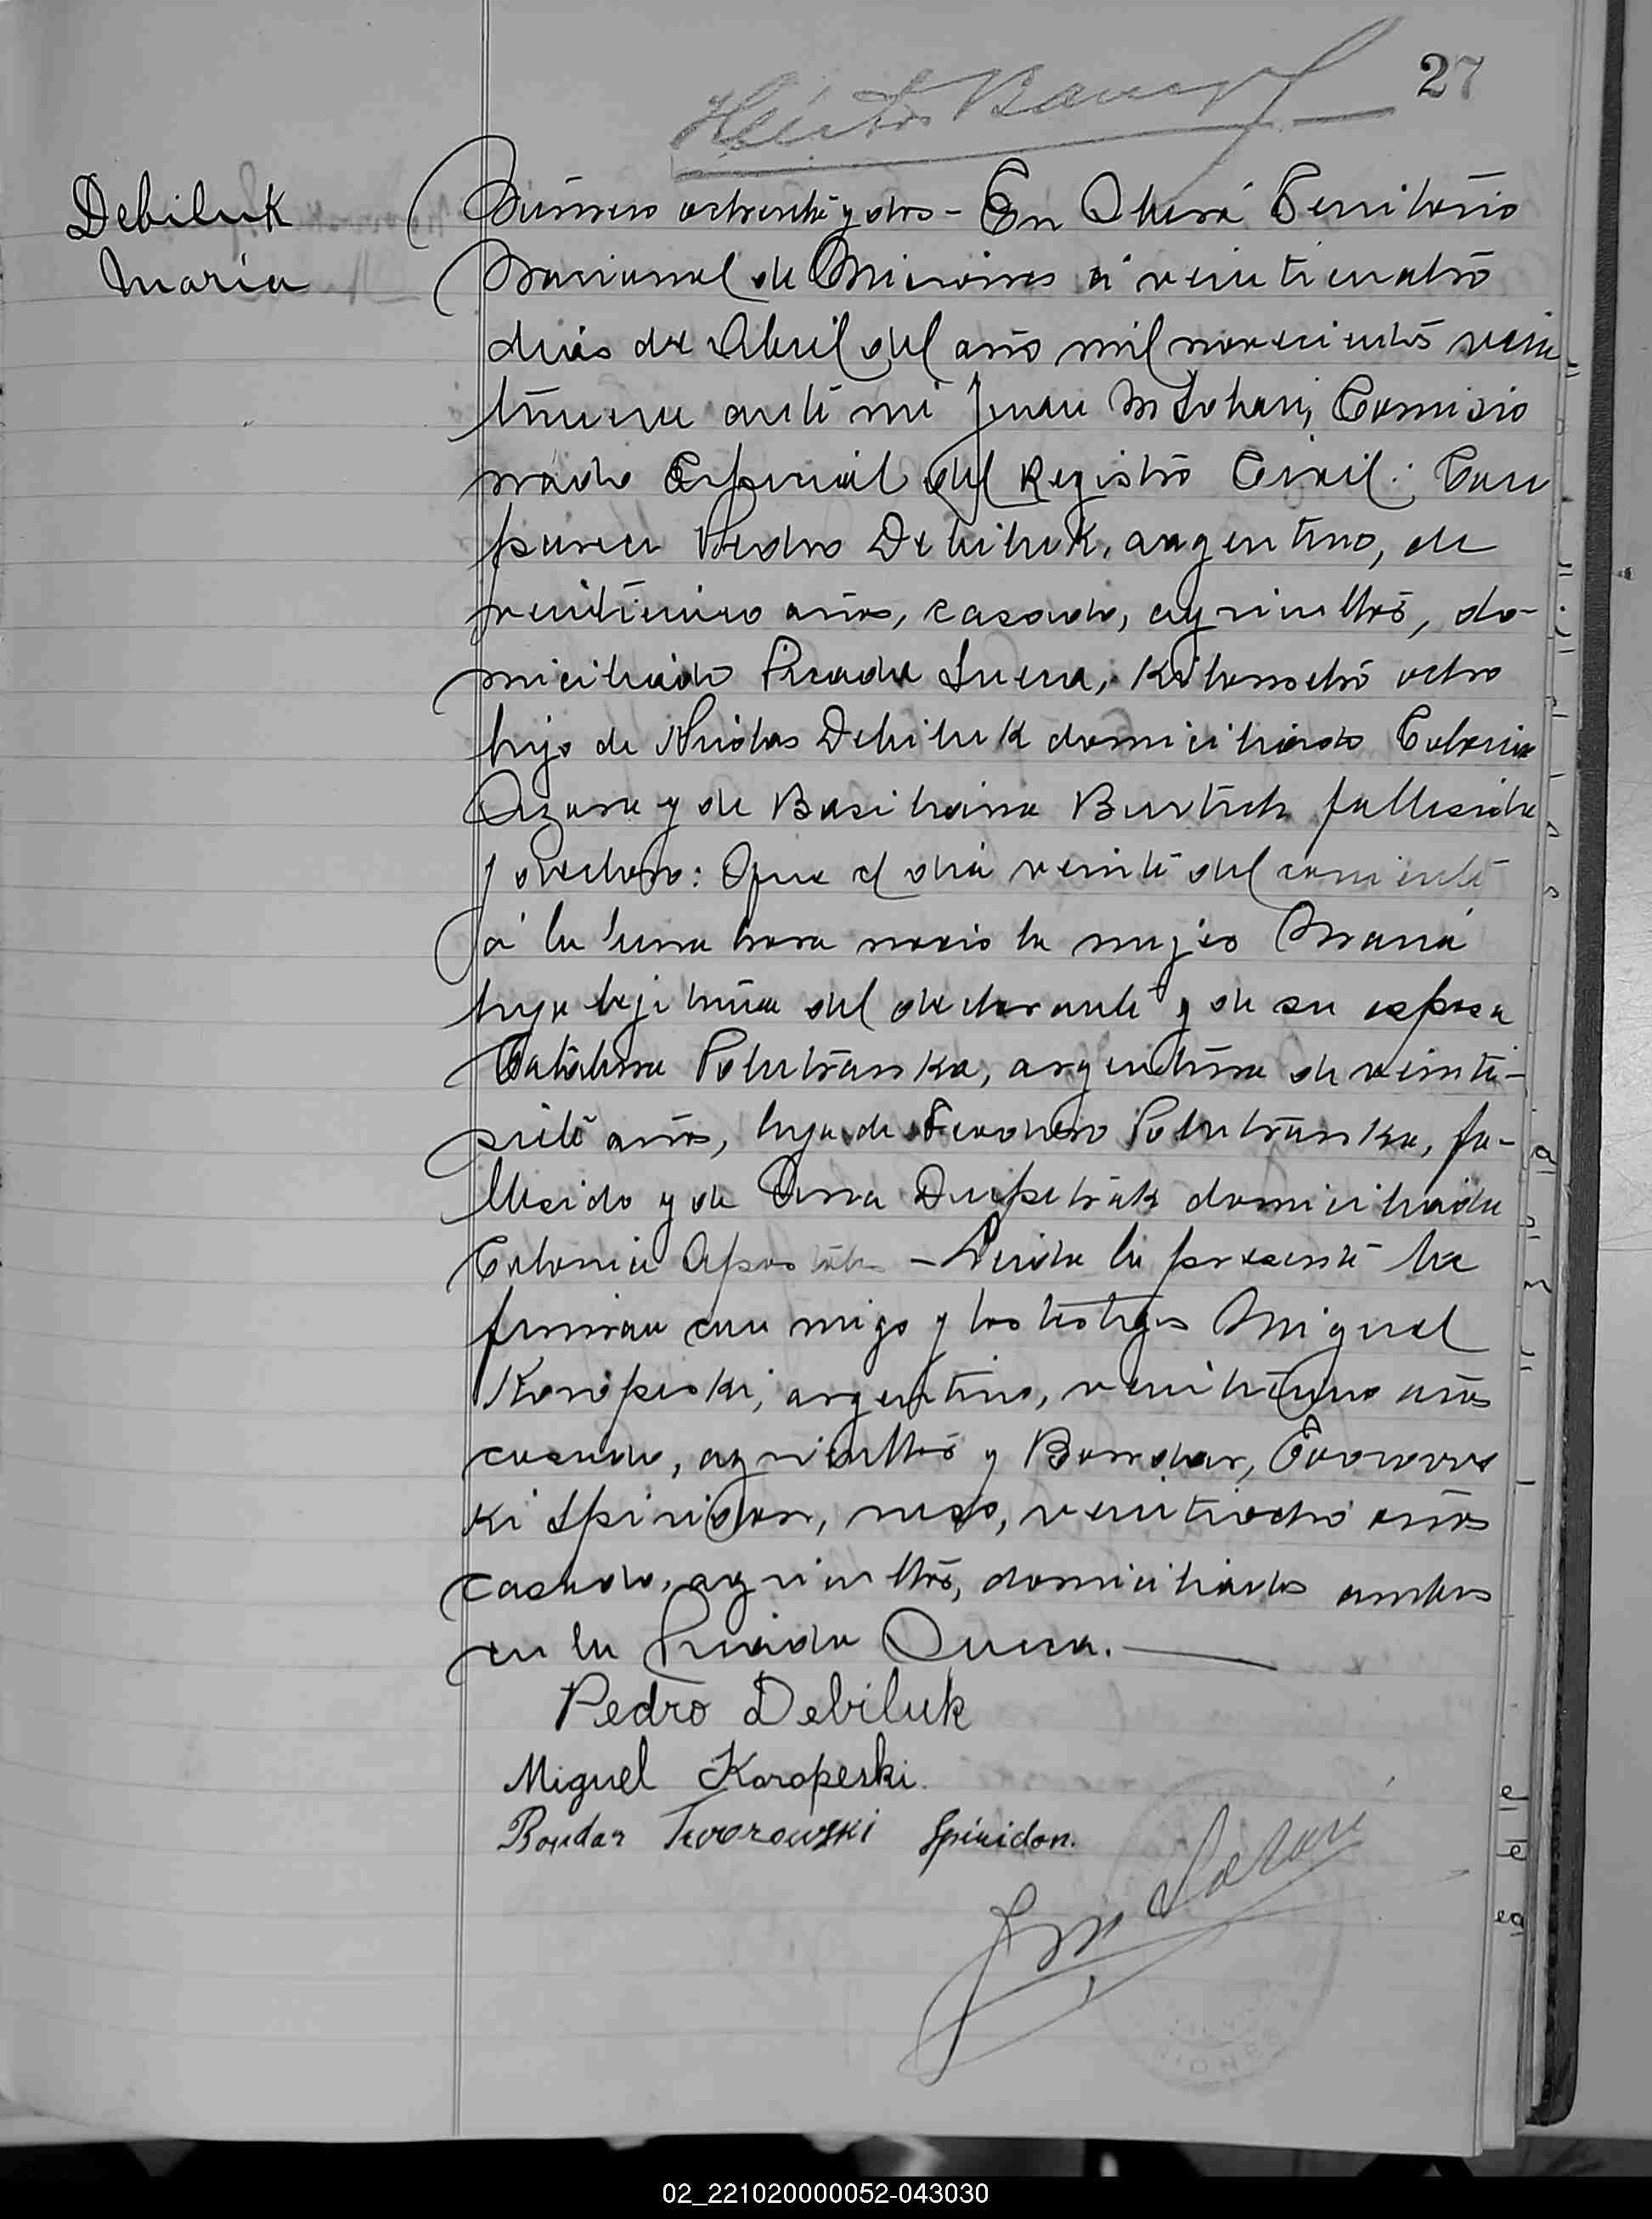 27
Debiluk
María
Número ochenta y dos - En Oberá Territorio
Nacional de Misiones á veinticuatro
dias de Abril del año mil novecientos vein
tinueve ante mi Juan M Lohari, Comisio
nado Especial del Registro Civil: Com
parece Pedro Debiluk, argentino, de
años, casado, agricultor, do-
miciliado Picada Sueca, Kilometro ocho
hijo de Nicolas Debiluk domiciliado Colonia
Azara y de Basiliana fallesida
y declaro: Que el dia veinte del corriente
á la una hora nacio la mujer María
hija lejitima del declarante y de su esposa
Catalina Polutranka, argentina de veinti-
siete años, hija de Polutranka, fa-
llesido y de Ana domiciliada
Colonia Apostoles - Leida la presente la
firman con migo y los testigos Miguel
Koropeski, argentino, años
casado, agricultor y Bondar,
ki Spiridon, ruso, veintiocho años
casado, agricultor, domiciliados ambos
en la Picada Sueca.
Pedro Debiluk
Miguel Koropeski.
Bondar Tworowski Spiridon.
02_221020000052-043030